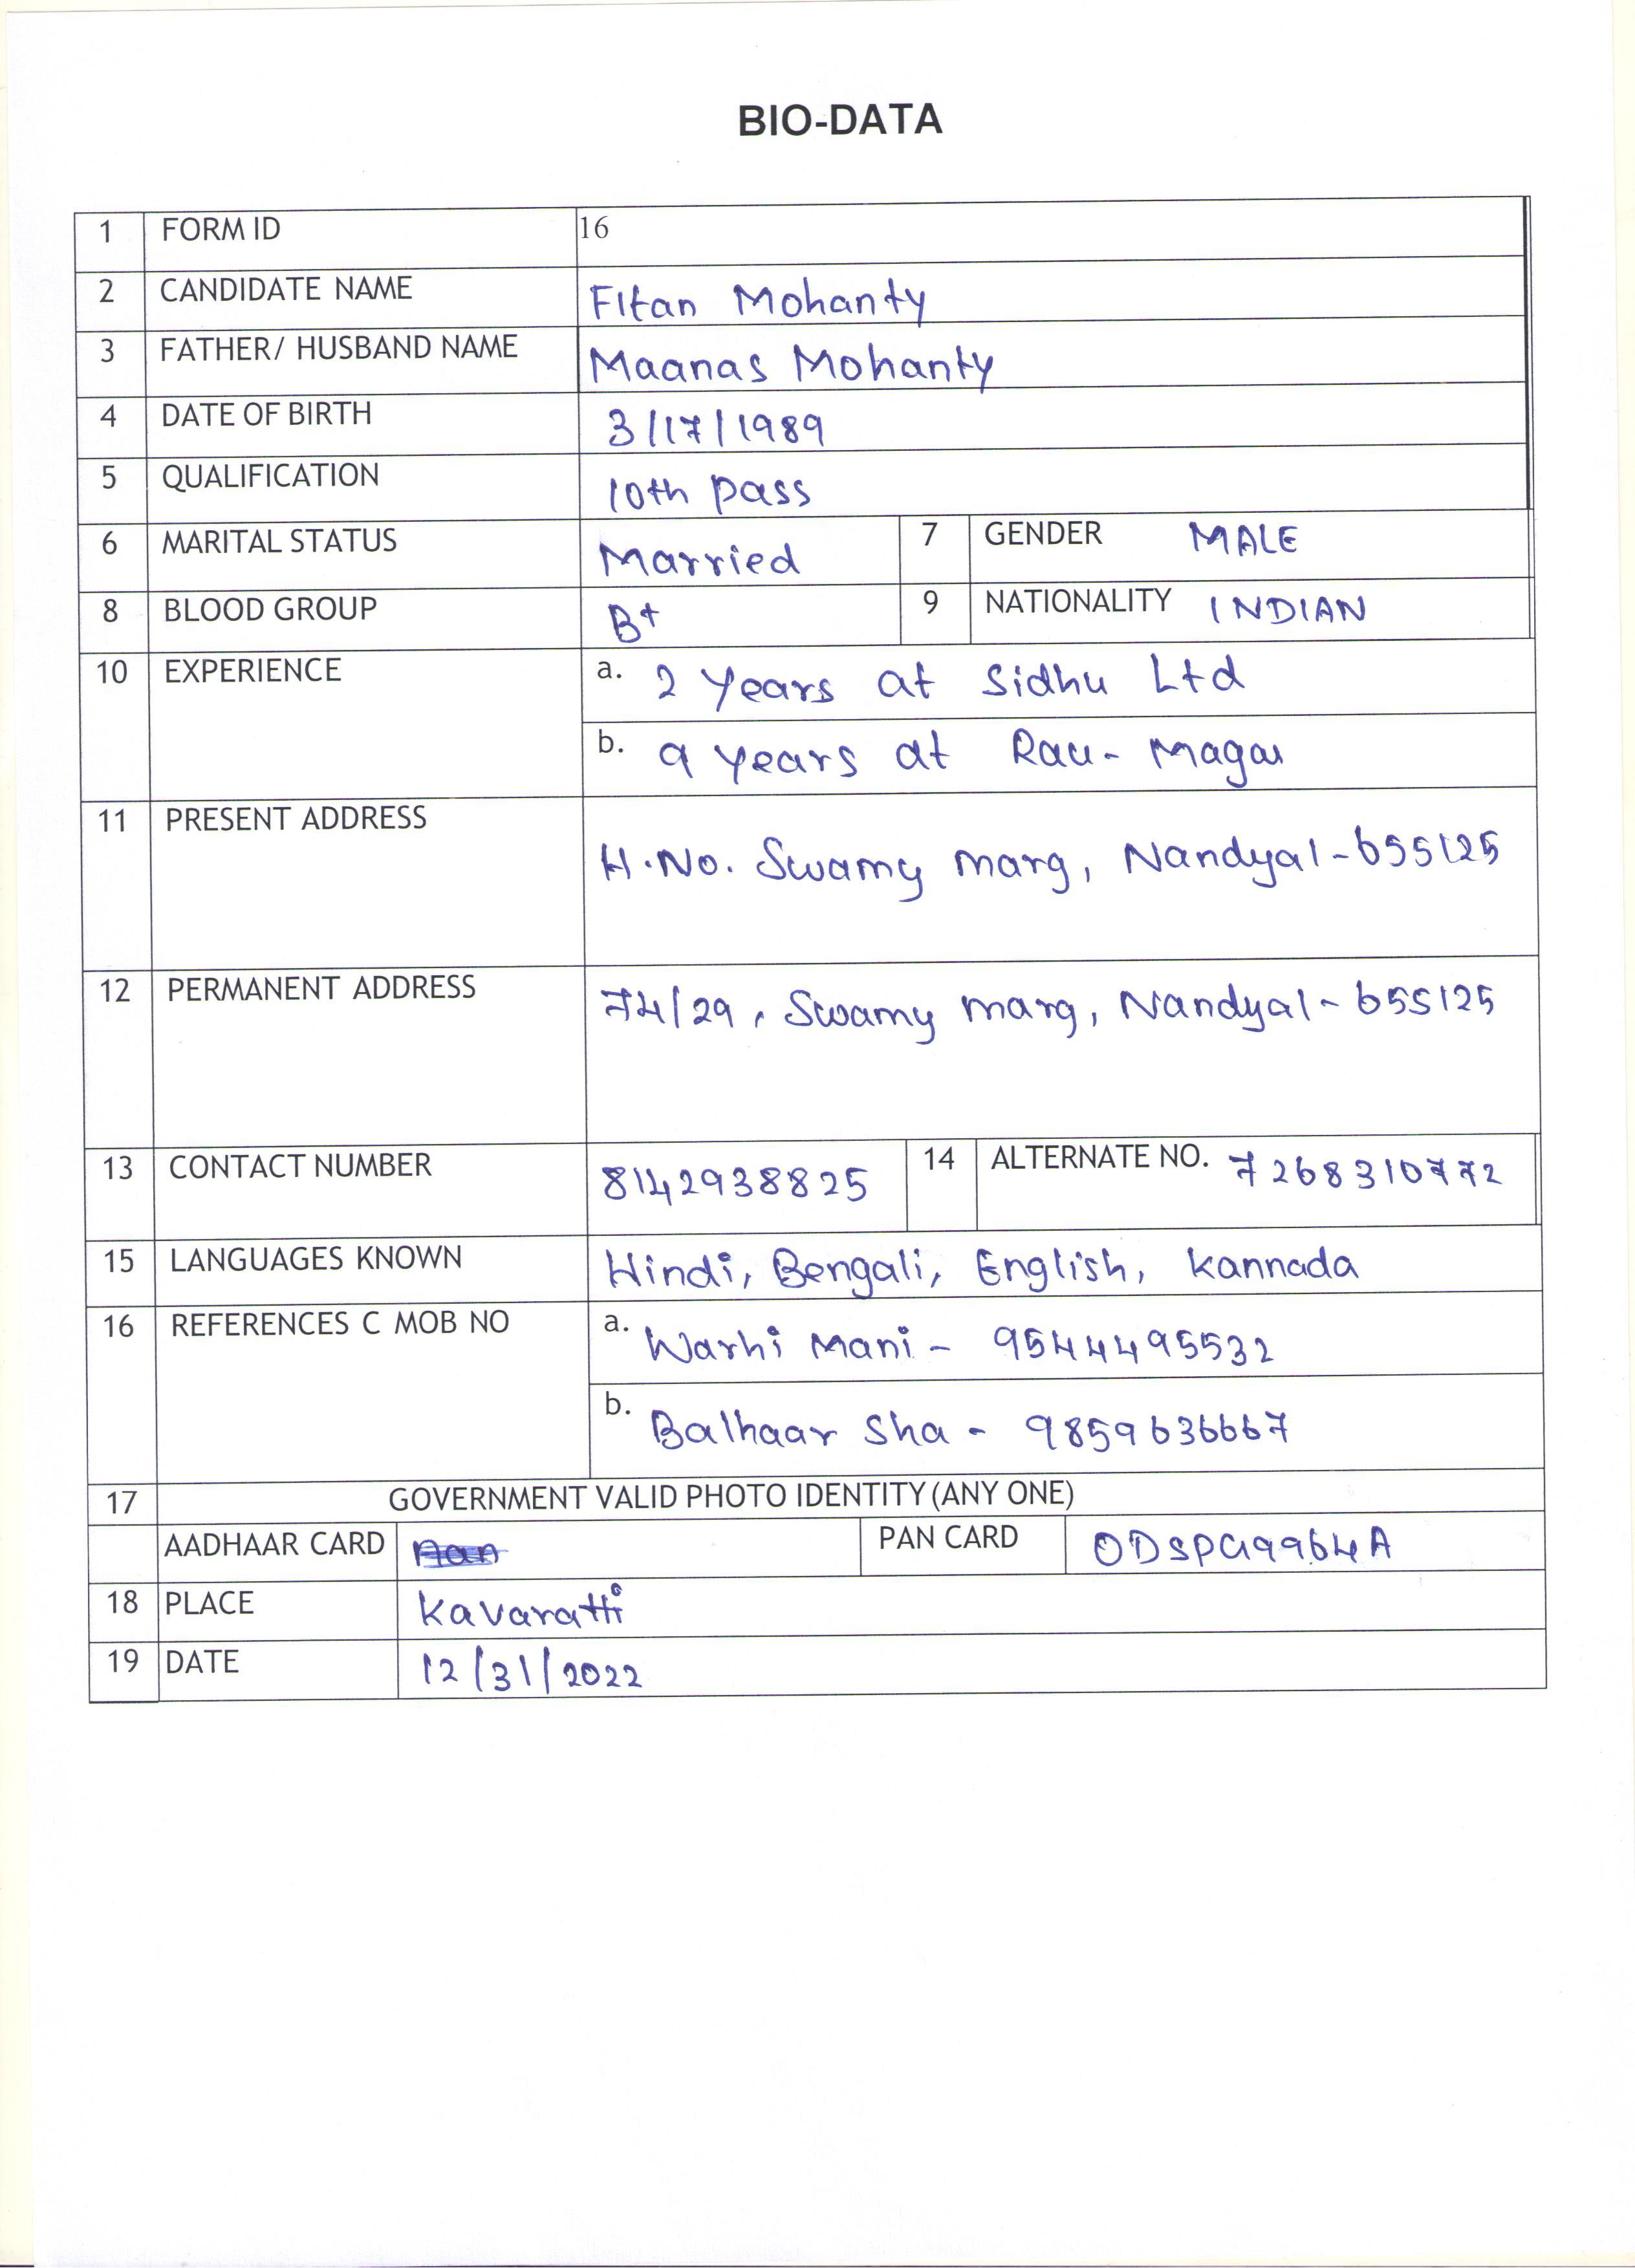 BIO-DATA
1 FORM ID 16
2 CANDIDATE NAME Fitan Mohanty
3 FATHER/ HUSBAND NAME Maanas Mohanty
4 DATE OF BIRTH 3/17/1989
5 QUALIFICATION 10th pass
6 MARITAL STATUS Married 7 GENDER MALE
8 BLOOD GROUP B+ 9 NATIONALITY INDIAN
10 EXPERIENCE a. 2 Years at Sidhu Ltd
b. 9 years at Rau- Magar
11 PRESENT ADDRESS
H.No. Swamy marg, Nandyal-655125
12 PERMANENT ADDRESS 74/29, Swamy marg, Nandyal-655125
13 CONTACT NUMBER 8142938825 14 ALTERNATE NO. 7268310772
15 LANGUAGES KNOWN Hindi, Bengali, English, kannada
16 REFERENCES C MOB NO a. Warhi Mani - 9544495532
b. Balhaar Sha - 9859636667
17 GOVERNMENT VALID PHOTO IDENTITY (ANY ONE)
AADHAAR CARD PAN CARD ODSPG9964A
18 PLACE Kavaratti
19 DATE 12/31/2022